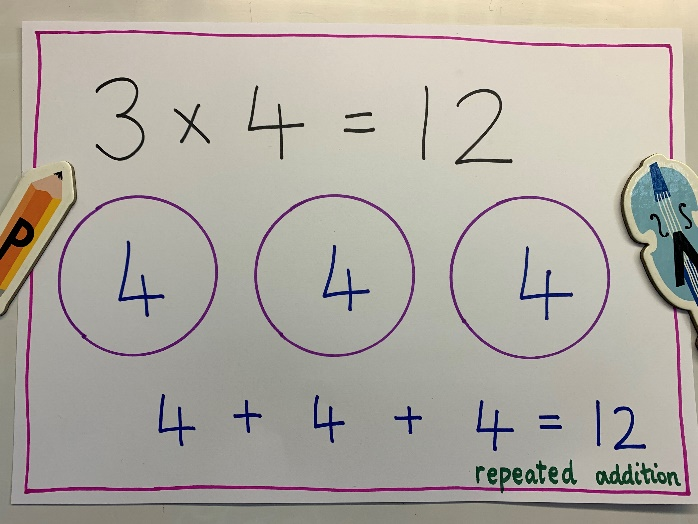 3 × 4 = 12
P
4 4 4
N
4 + 4 + 4 = 12
repeated addition